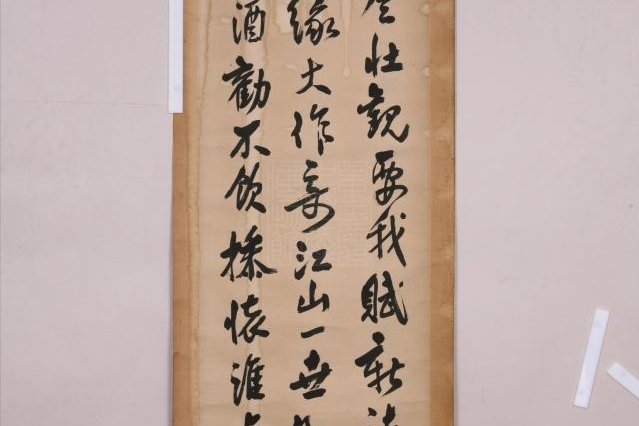 壯觀要我賦新
緣大作奇江山一世
酒勸不飲懷誰